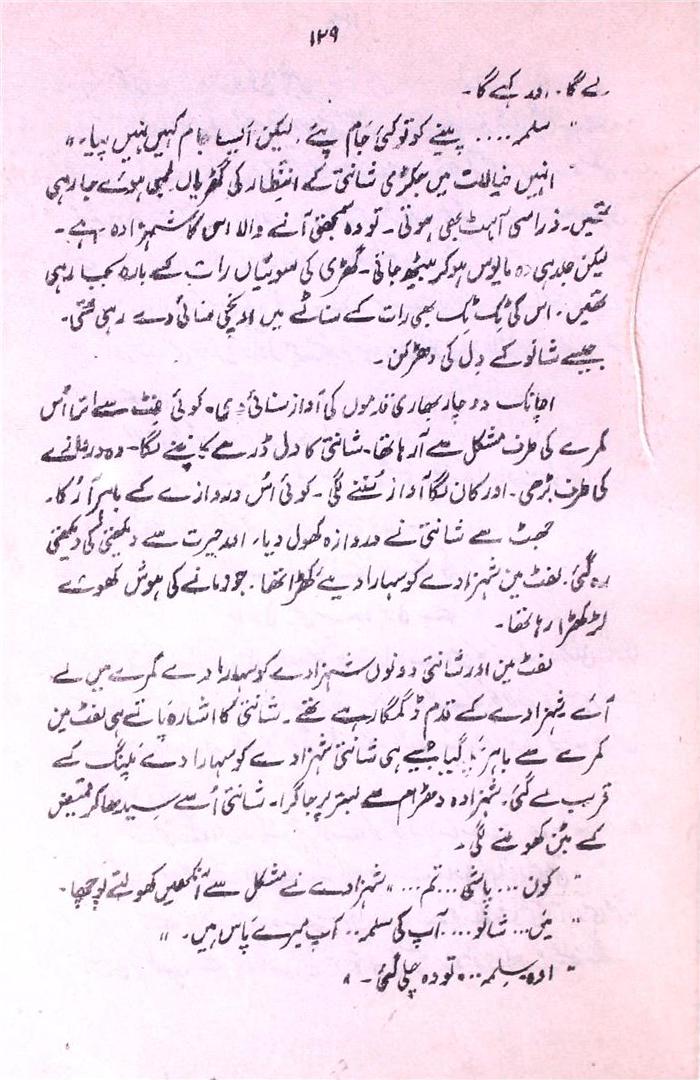 ۱۲۹
لے گا۔ اور کہے گا۔
" سلمہ .... پینے کو تو کئی جام پئے ، لیکن ایسا جام کہیں نہیں پیا۔ "
انہیں خیالات میں جکڑی شانتی کے انتظار کی گھڑیاں لمبی ہوئے جا رہی
تھیں۔ ذرا سی آہٹ بھی ہوتی۔ تو وہ سمجھتی آنے والا اس کا شہزادہ ہے۔
لیکن جلد ہی وہ مایوس ہو کر بیٹھ جاتی۔ گھڑی کی سوئیاں رات کے بارہ بجا رہی
تھیں۔ اس کی ٹک ٹک بھی رات کے سناٹے میں اونچی سنائی دے رہی تھی۔
جیسے شانو کے دل کی دھڑکن۔
اچانک دو چار بھاری قدموں کی آواز سنائی دی۔ کوئی لفٹ سے اتر اُس
کمرے کی طرف مشکل سے آ رہا تھا۔ شانتی کا دل ڈر سے کانپنے لگا۔ وہ دروازے
کی طرف بڑھی۔ اور کان لگا آواز سُننے لگی۔ کوئی اُس دروازے کے باہر آ رُکا۔
جھٹ سے شانتی نے دروازہ کھول دیا۔ اور حیرت سے دیکھتی کی دیکھتی
رہ گئی۔ لفٹ مین شہزادے کو سہارا دیے کھڑا تھا۔ جو زمانے کی ہوش کھوئے
لڑکھڑا رہا تھا۔
لفٹ مین اور شانتی دونوں شہزادے کو سہارا دے کمرے میں لے
آئے شہزادے کے قدم ڈگمگا رہے تھے۔ شانتی کا اشارہ پاتے ہی لفٹ مین
کمرے سے باہر گیا جیسے ہی شانتی شہزادے کو سہارا دے پلنگ کے
قریب لے گئی۔ شہزادہ دھڑام سے بستر پر جا گرا۔ شانتی اُسے سیدھا کر قمیض
کے بٹن کھولنے لگی۔
" کون ... پاشی ... تم ... " شہزادے نے مشکل سے آنکھیں کھولتے پوچھا۔
" میں ... شانو .... آپ کی سلمہ .. آپ میرے پاس ہیں۔ "
" اوہ سلمہ ... تو وہ چلی گئی۔ "